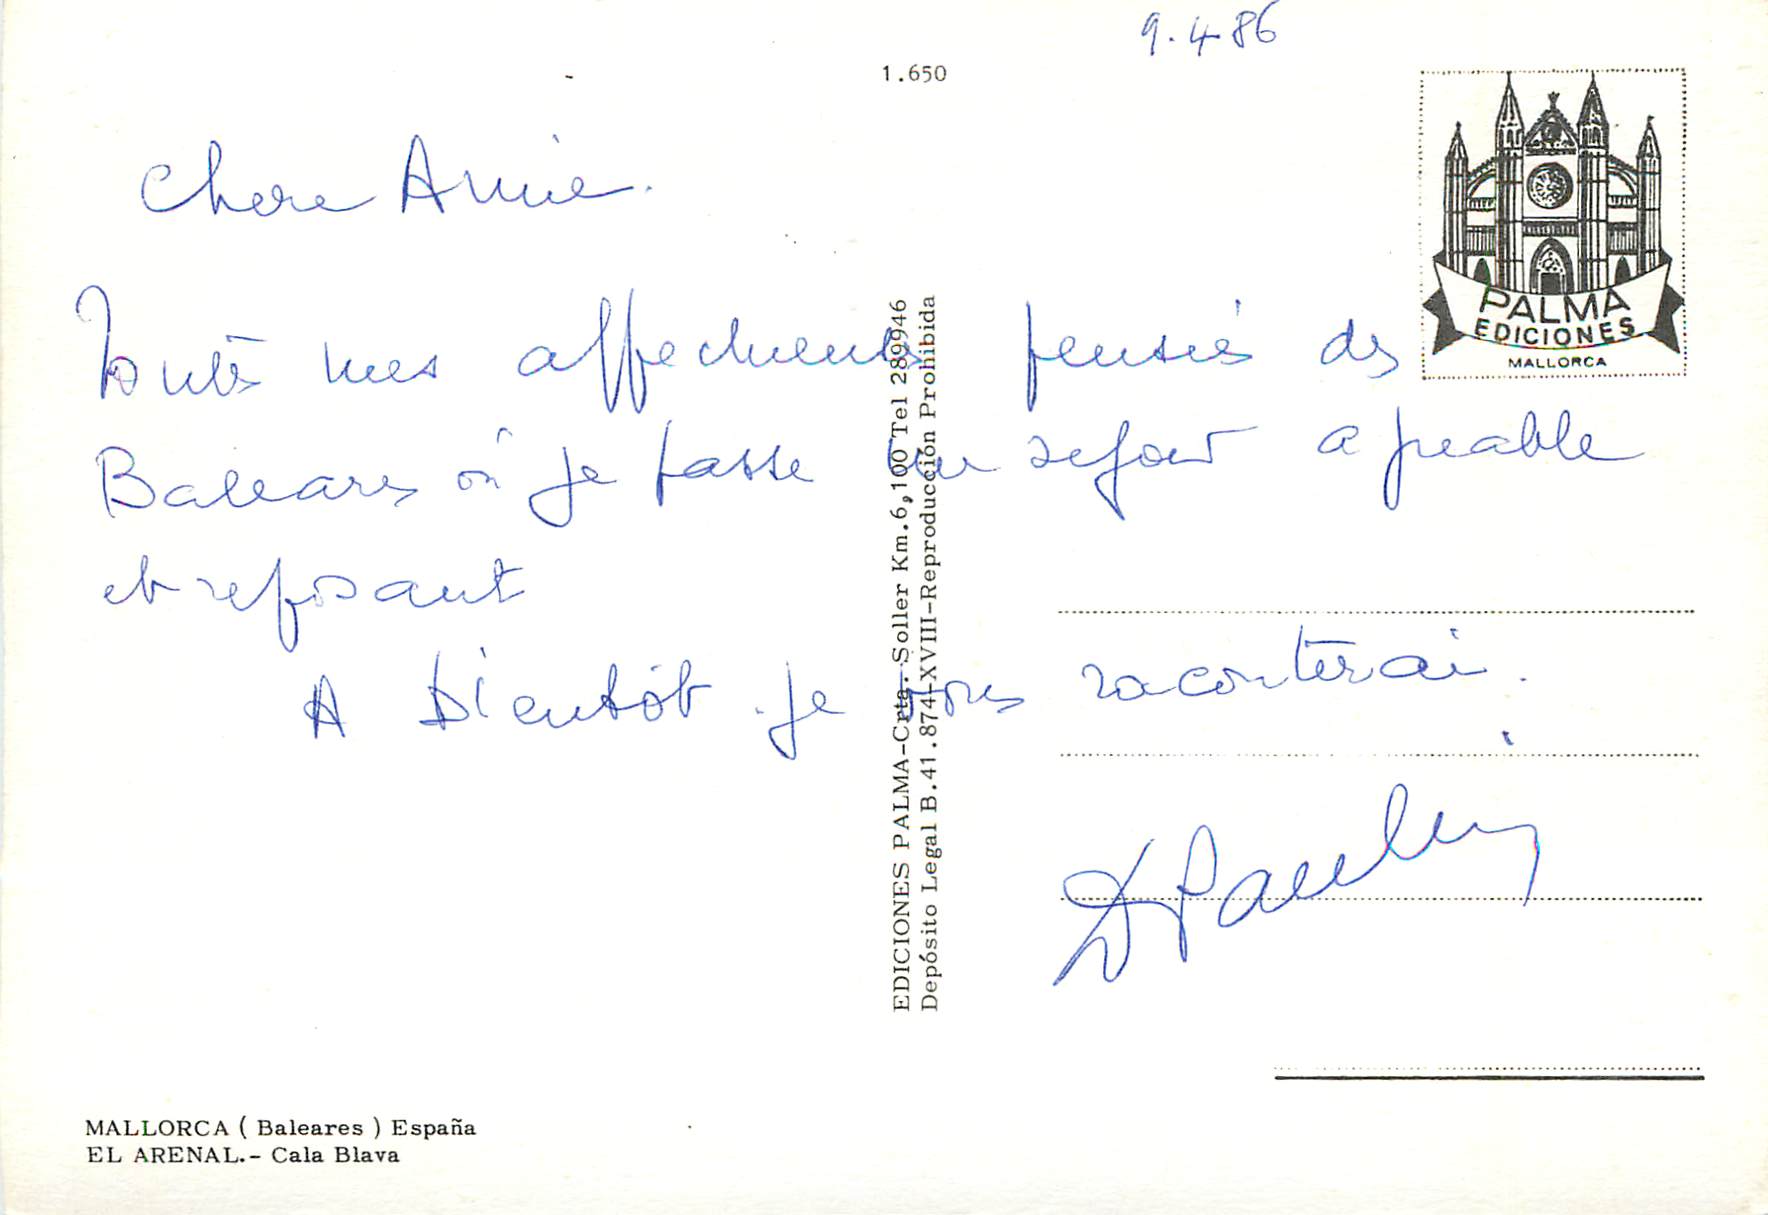 9.4.86
1.650
Chere Annie.
Toutes mes affectueuses pensées des
Baleares où je passe un sejour agreable
et reposant
A Bientôt je vous raconterai.
PALMA
EDICIONES
MALLORCA
EDICIONES PALMA-Crta. Soller Km.6,100 Tel 289946
Depósito Legal B.41.874-XVIII-Reproducción Prohibida
MALLORCA ( Baleares ) España
EL ARENAL.- Cala Blava